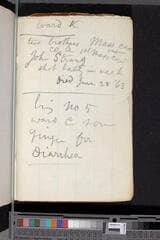 ward K
two brothers Mass
Co. A
John Strang
shot ball – neck
Died June 28 '63
big no 5
ward C
ginger for
Diarrhea